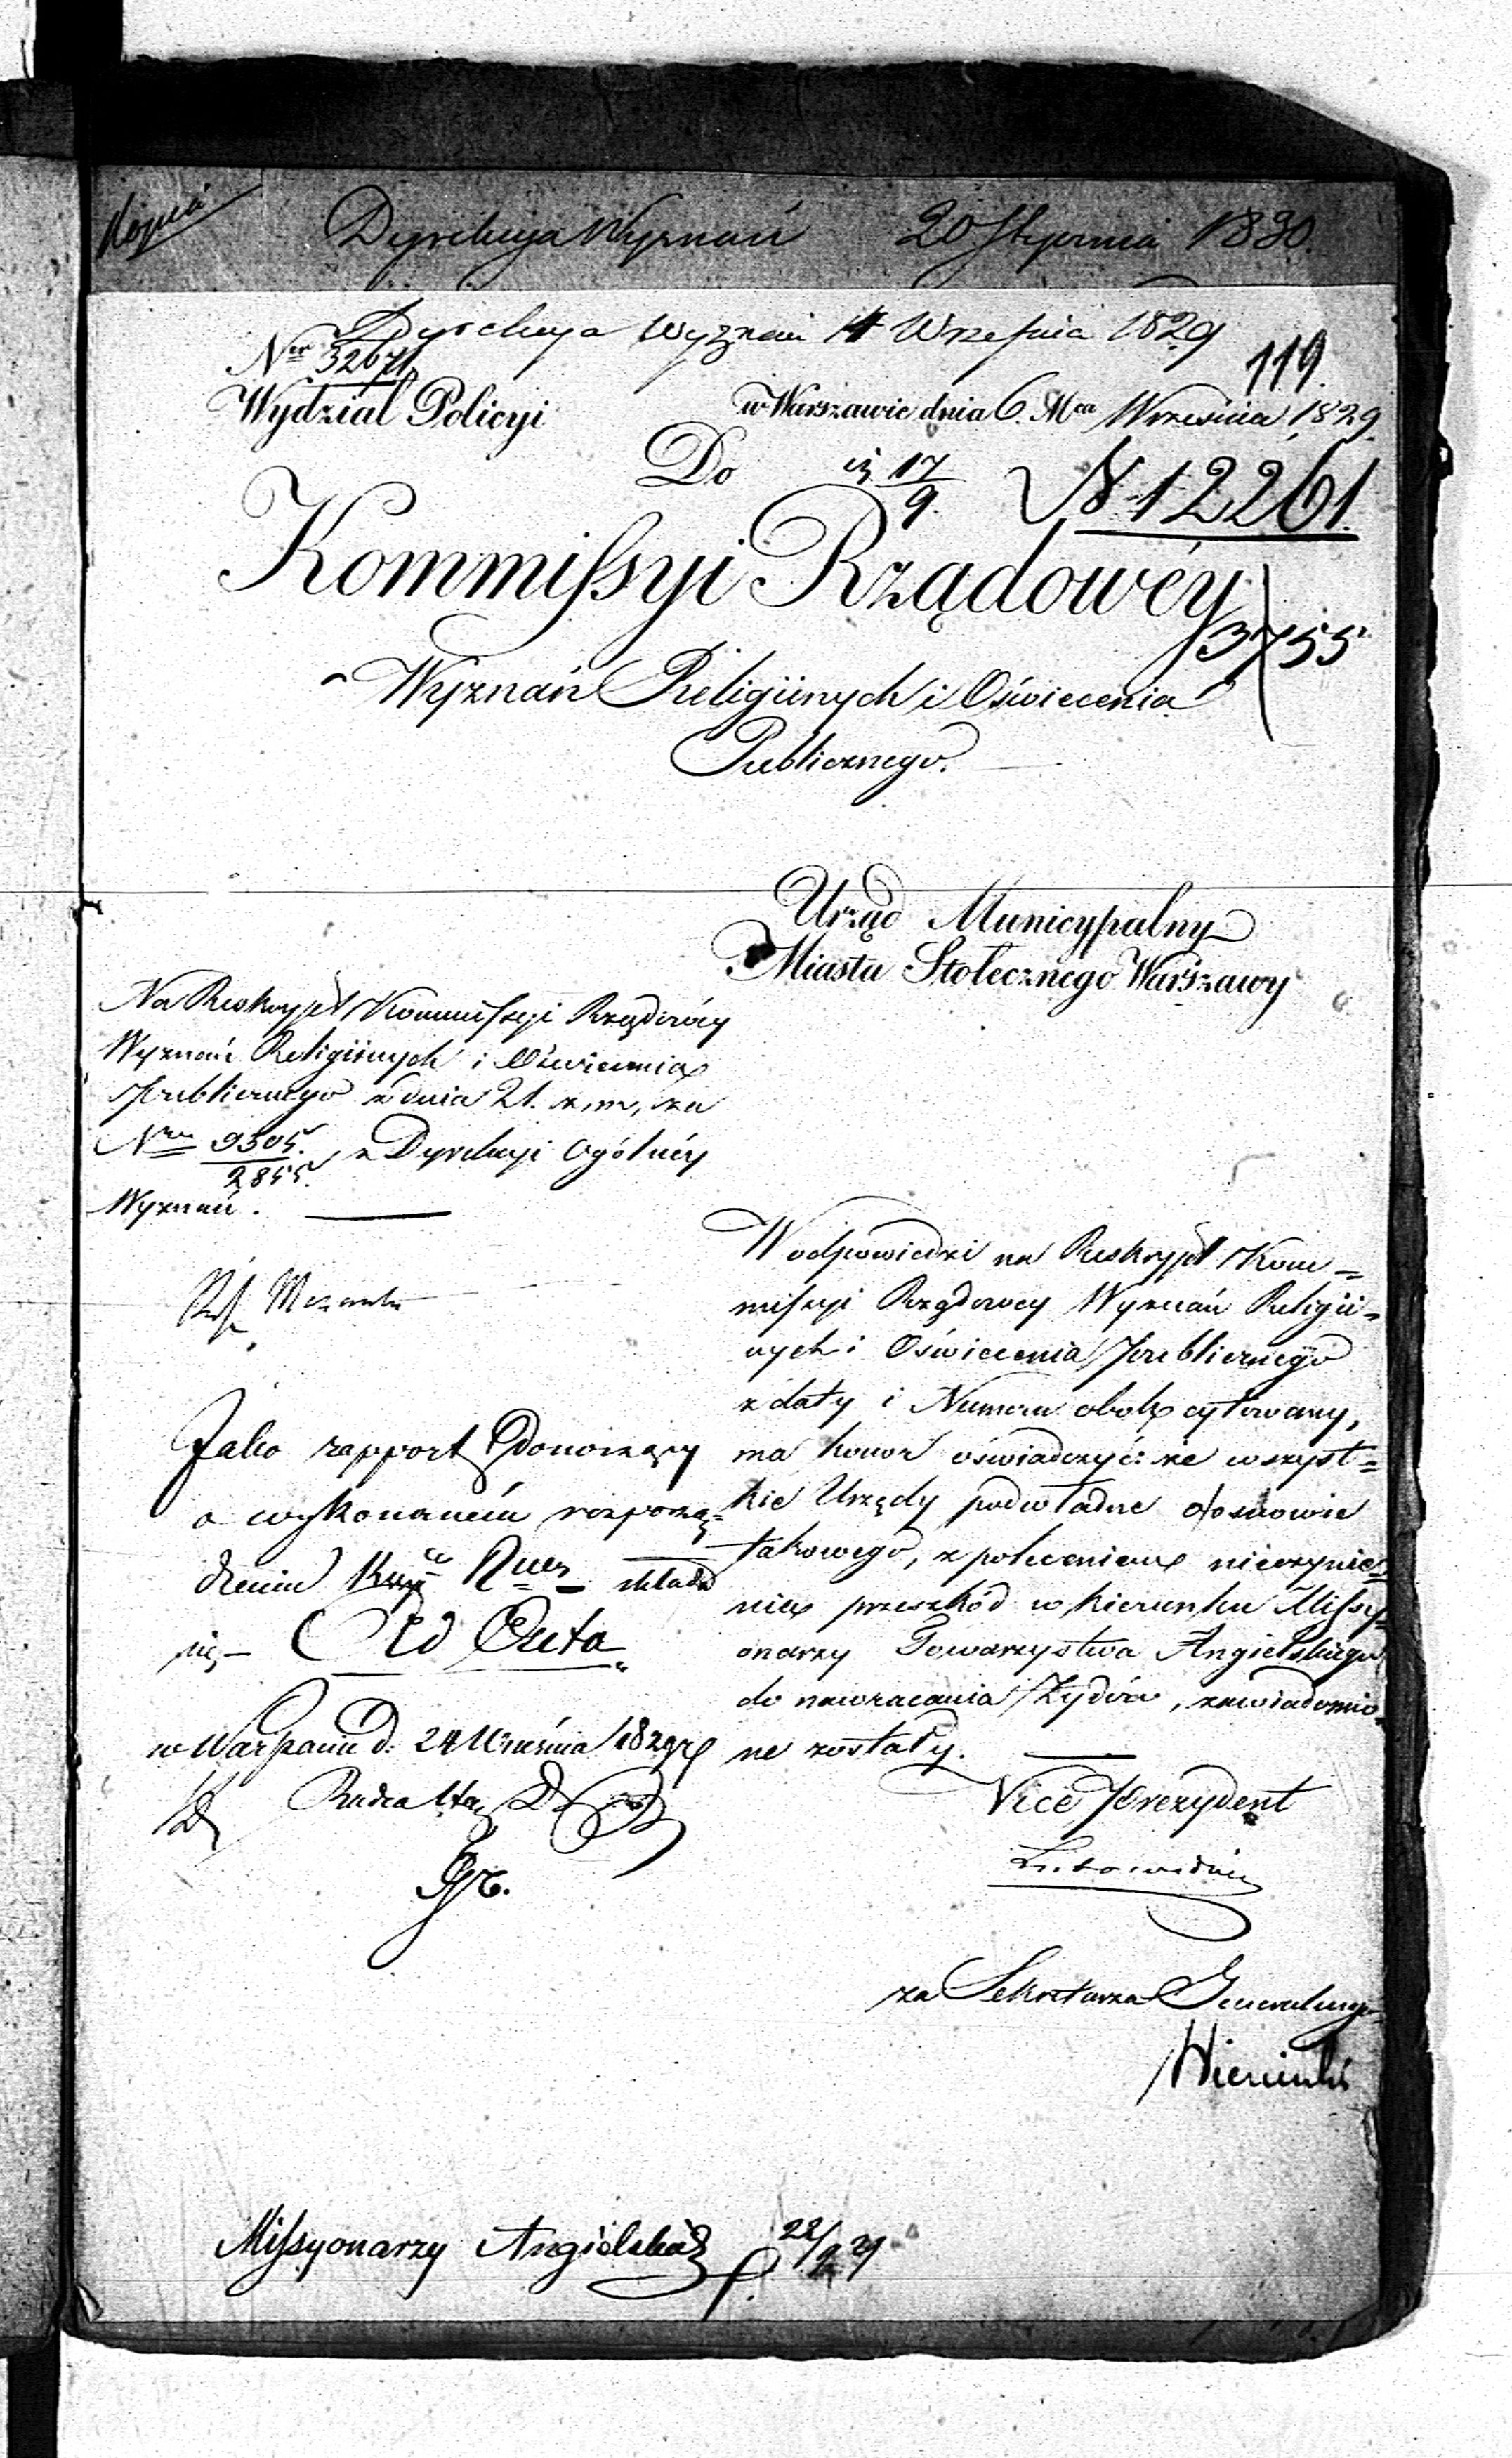 Kopia
Dyrekcya Wyznań 20 Stycznia 1830.
Dyrekcya Wyznań 14 Września 1829
Nro 32671
119.
Wydział Policyi
w Warszawie dnia 6. Mca Września 1829.
Do
17/9.
N 12261.
Kommissyi Rządowéy
3755
Wyznań Religiinych i Oświecenia
Publicznego.
Urząd Municypalny
Miasta Stołecznego Warszawy
Na Reskrypt Kommissyi Rządowéy
Wyznań Religiinych i Oświecenia
Publicznego z dnia 21. z, m, za
Nrem 9505./2855. z Dyrekcyi Ogólnéy
Wyznań.
W odpowiedzi na Reskrypt Kom=
missyi Rządowey Wyznań Religii=
nych i Oświecenia Publicznego
z daty i Numeru obok cytowany,
ma honor oświadczyć: że wszyst=
kie Urzędy podwładne osnowie
takowego, z poleceniem nieczynie=
nia przeszkód w kierunku Missy=
onarzy Towarzystwa Angielskiego
do nawracania Żydów, zawiadomio=
ne zostały.
Jako rapport donoszący
o wykonaniu rozporzą=
dzenia składa
się – Ad Acta
w Warszawie d. 24 Września 1829 r
Radca
Vice Prezydent
Lubowidzki
za Sekretarza Generalnego
Missyonarzy Angielska